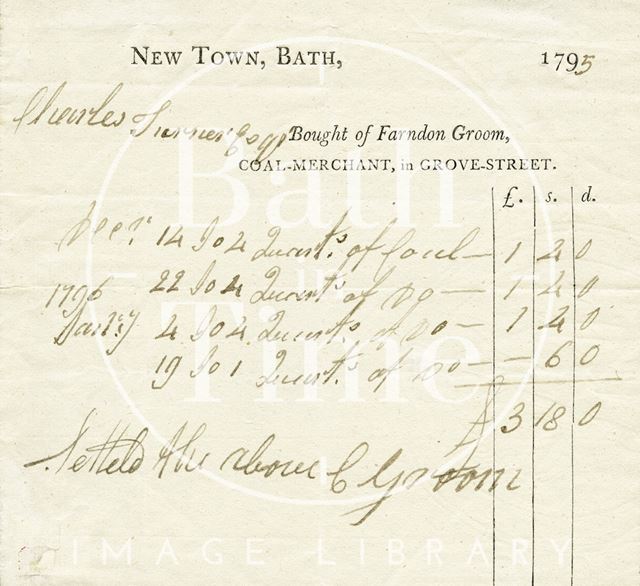 NEW TOWN, BATH, 1795
Charles Turner Esqr
Bought of Farndon Groom,
COAL-MERCHANT, in GROVE-STREET.
£. s. d.
Decr. 14 To 4 Quarts. of Coal — 1 4 0
22 To 4 Quarts. of Do — 1 4 0
1796
Janry 4 To 4 Quarts. of Do — 1 4 0
19 To 1 Quart. of Do — 6 0
£ 3 18 0
Setteld the above C Groom
Bath
in
Time
IMAGE LIBRARY